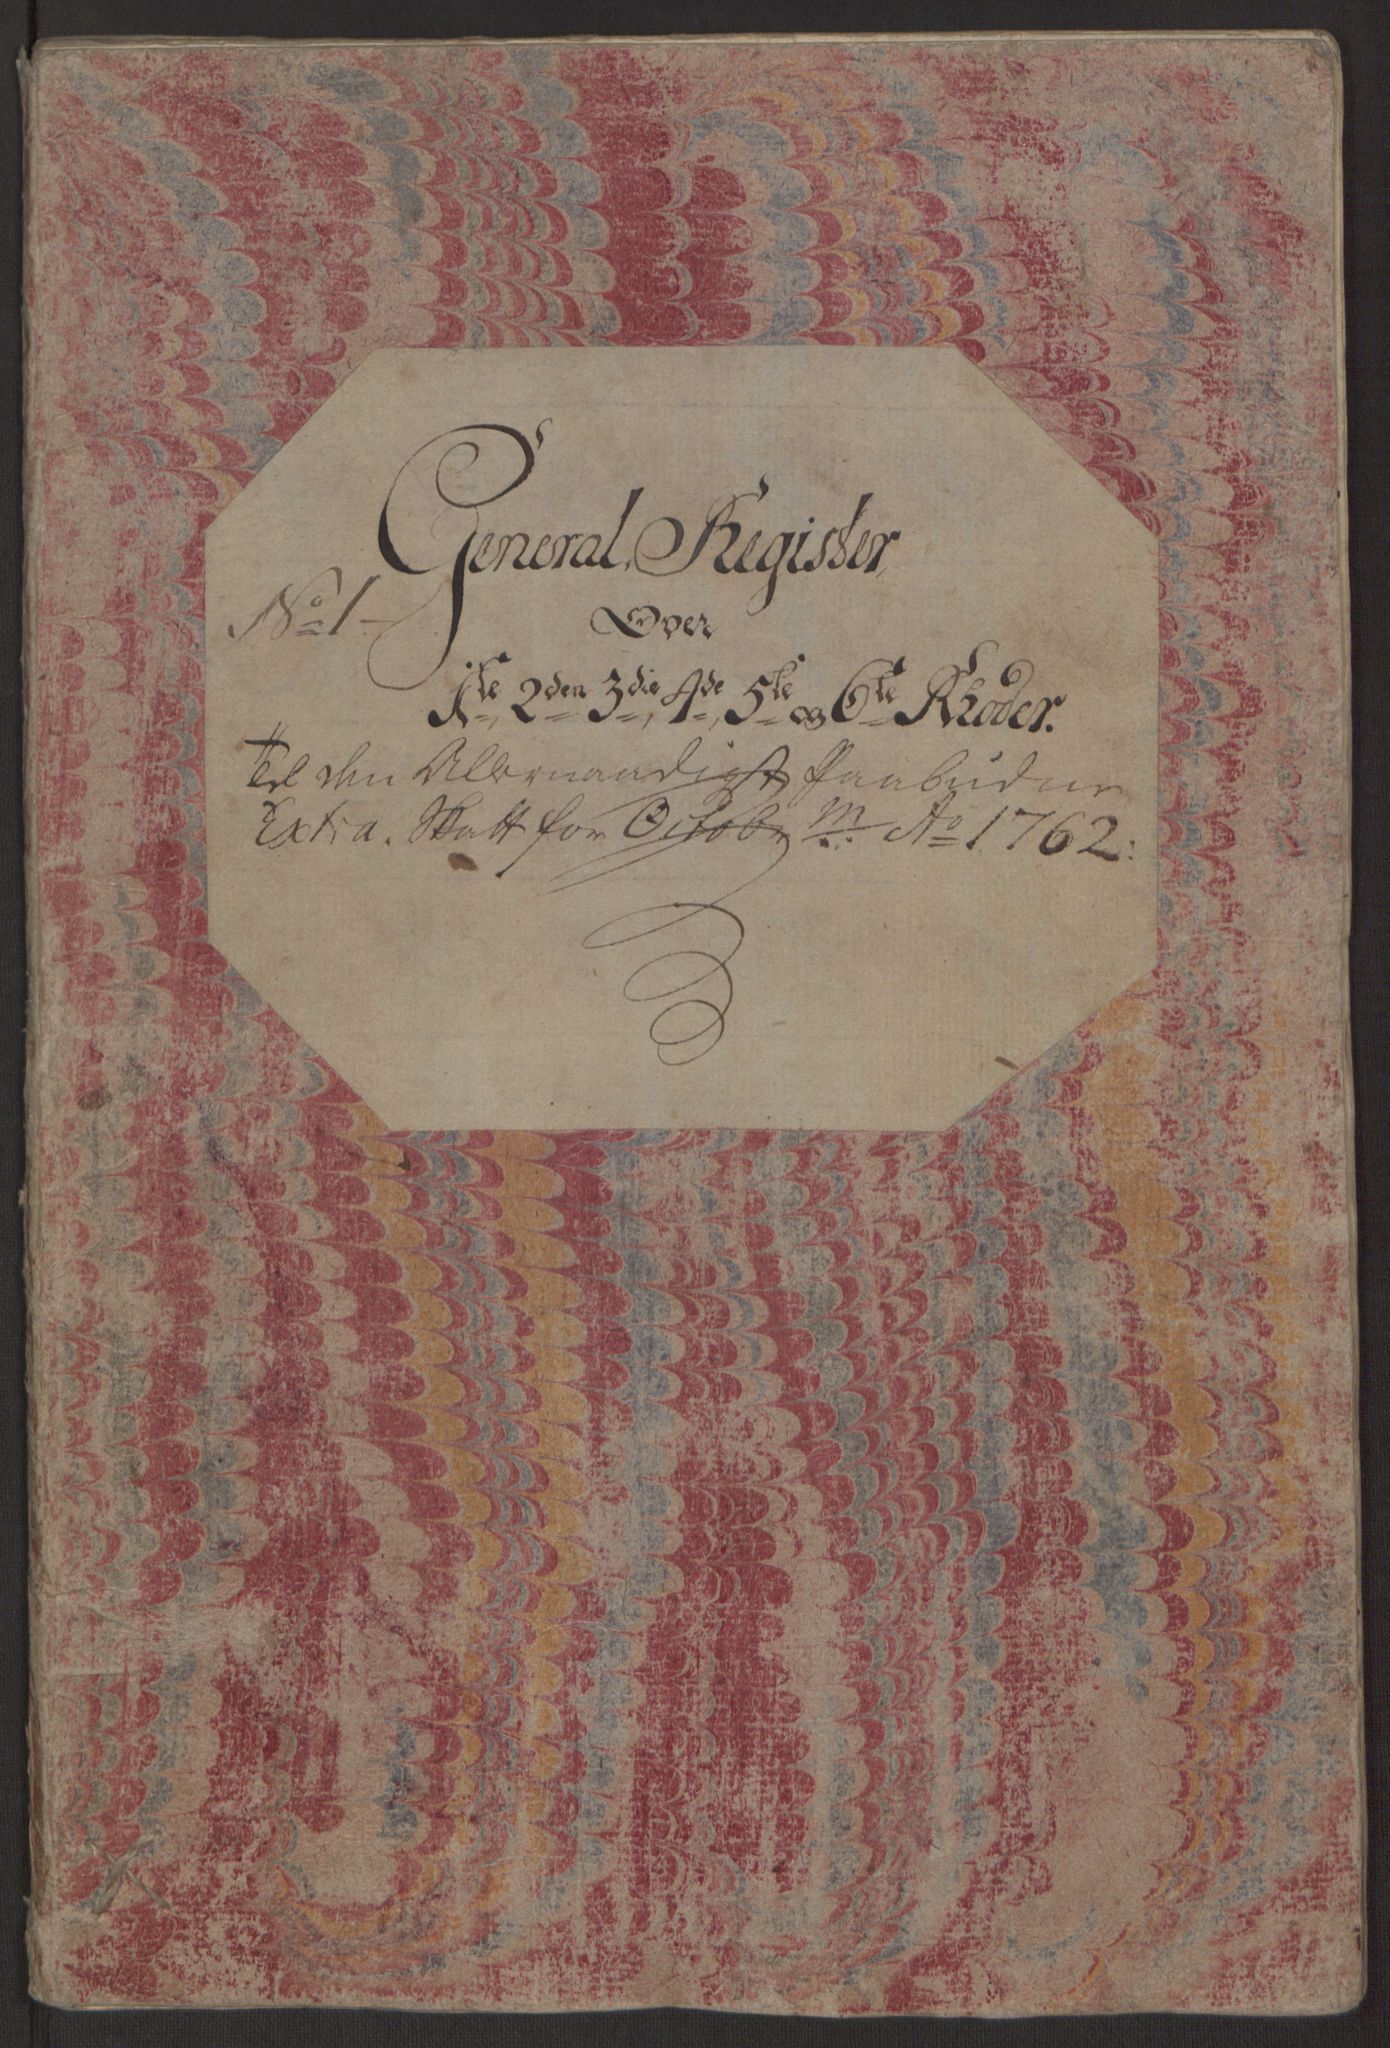 General Register
No 1
Over
1ste, 2den 3die, 4de, 5te og 6te Rhoder.
Til den Allernaadigst Paabudne
Extra. Skatt for Octobr M Ao 1762: